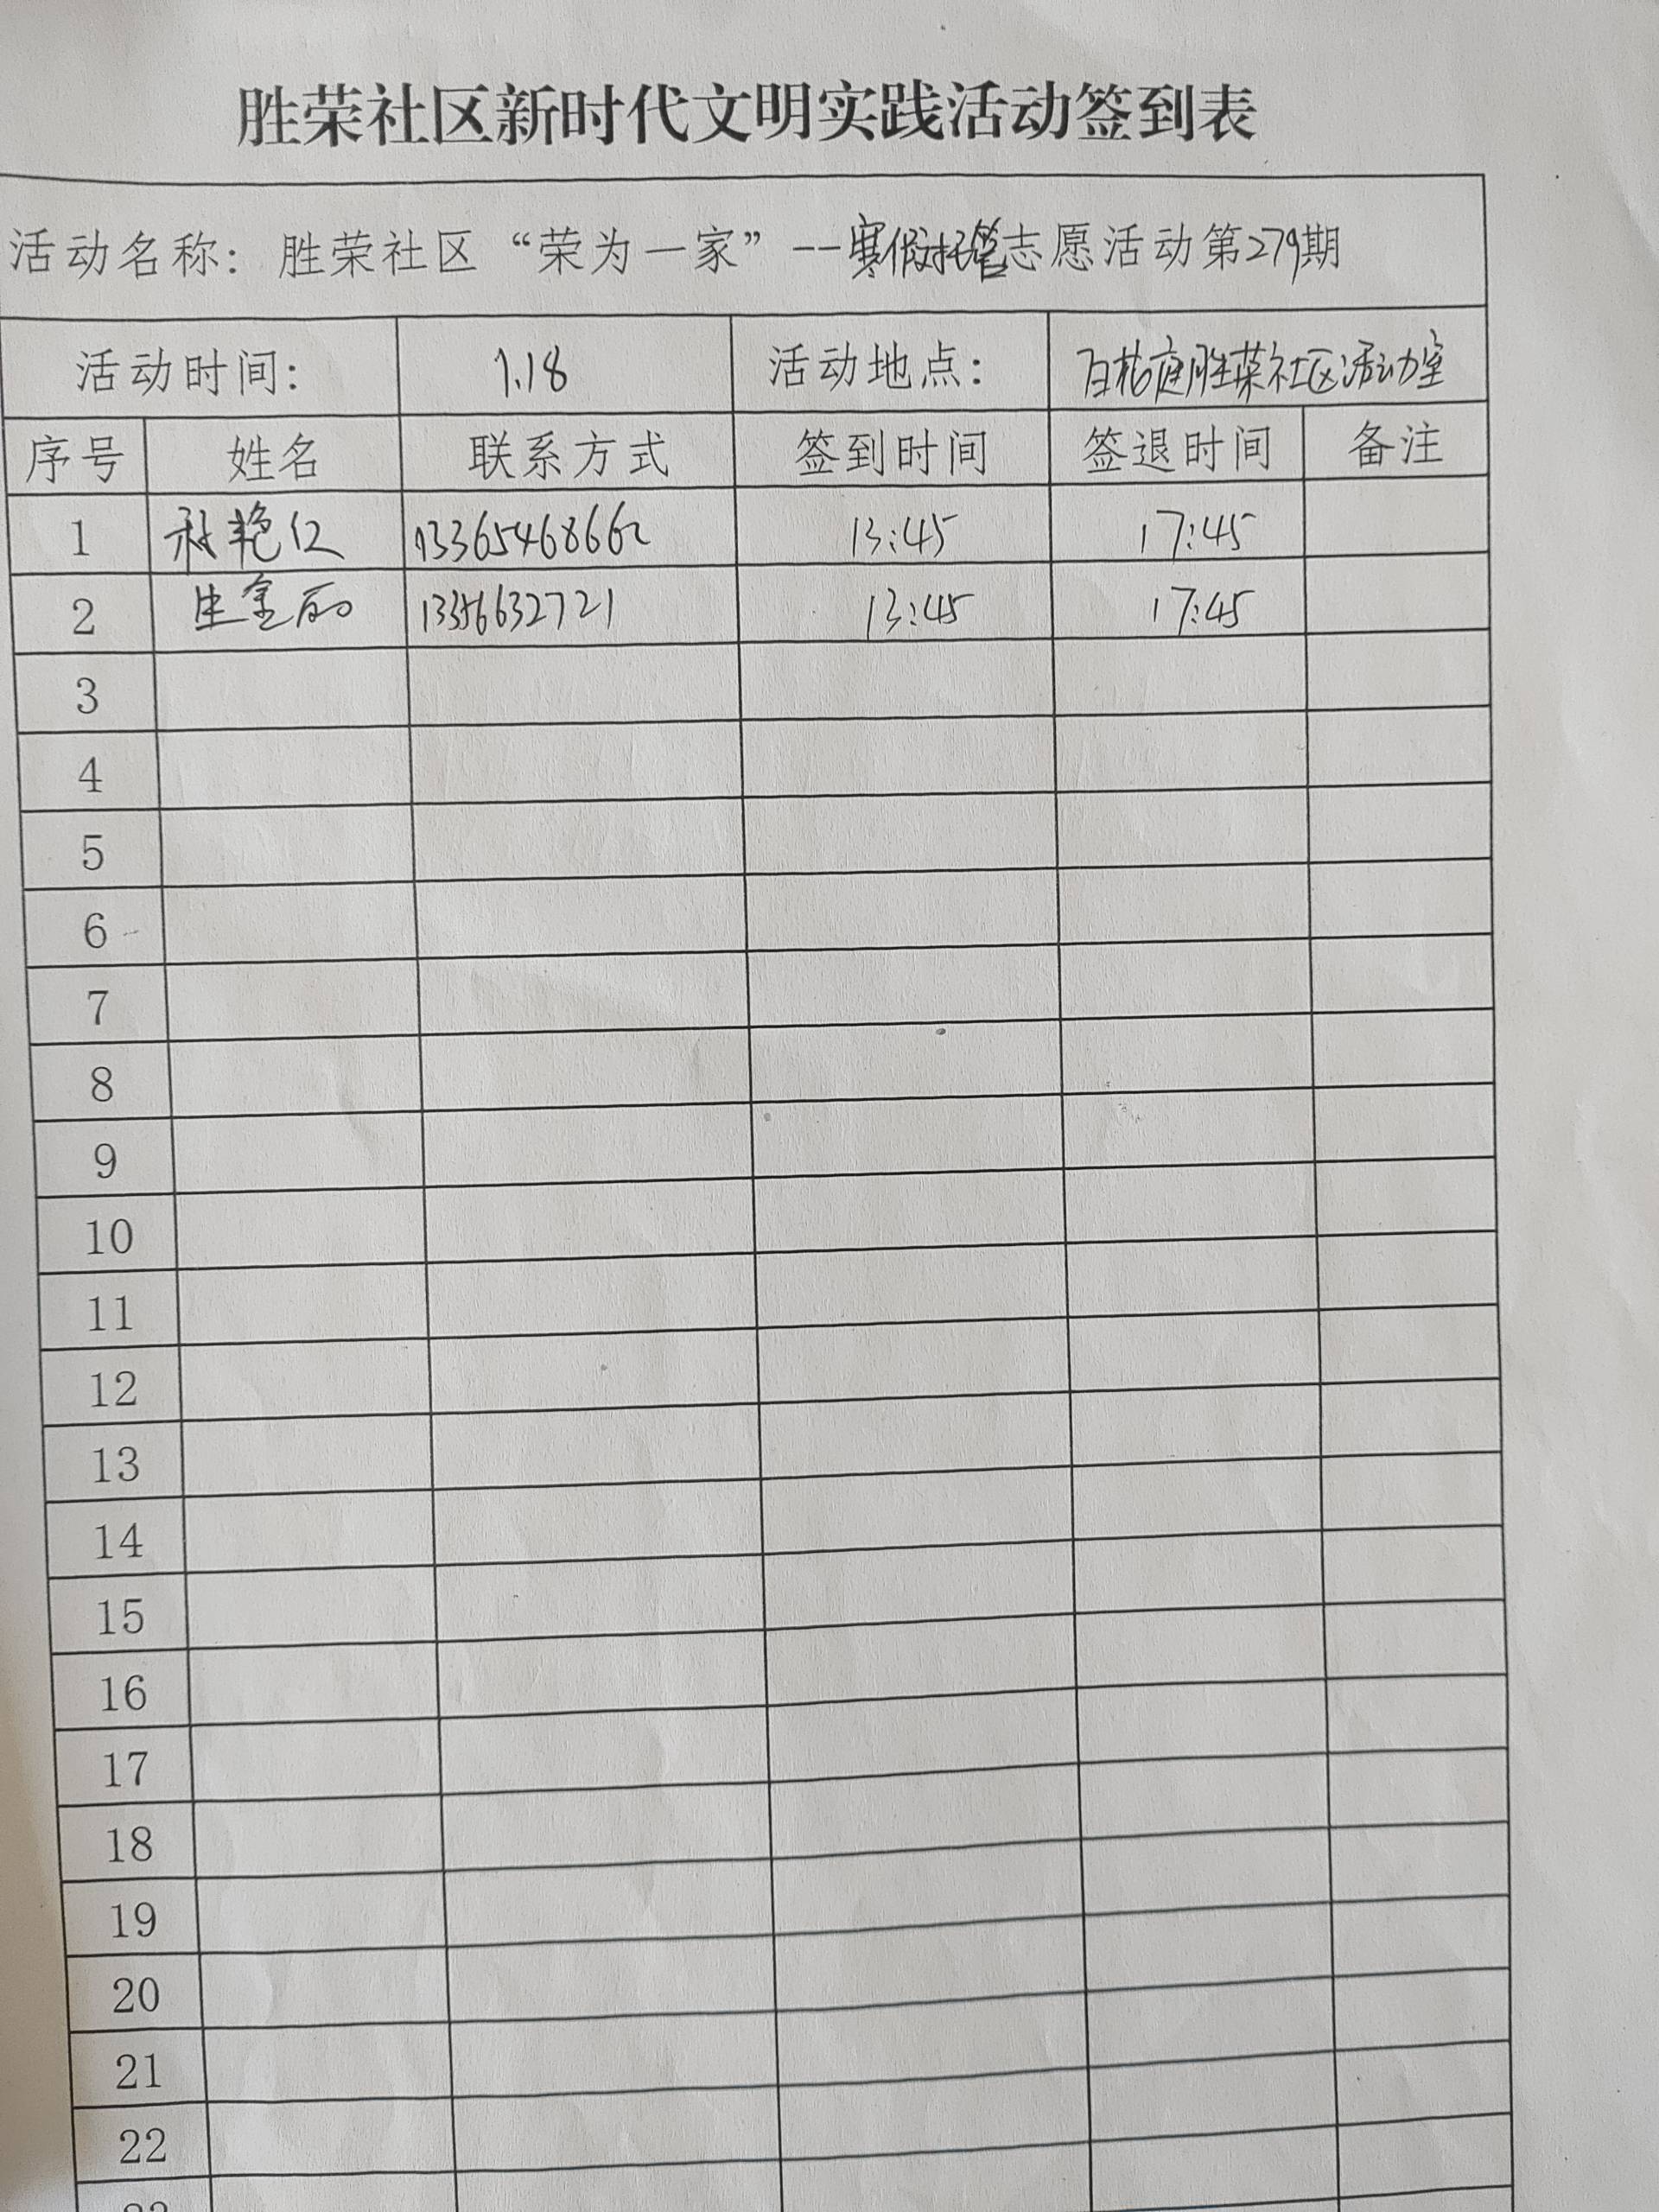 胜荣社区新时代文明实践活动签到表
活动名称：胜荣社区“荣为一家”--寒假托管志愿活动第279期
活动时间： 1.18 活动地点： 百桔庭胜荣社区活动室
序号 姓名 联系方式 签到时间 签退时间 备注
1 艳红 13365468662 13:45 17:45
2 生金丽 13356632721 13:45 17:45
3
4
5
6
7
8
9
10
11
12
13
14
15
16
17
18
19
20
21
22